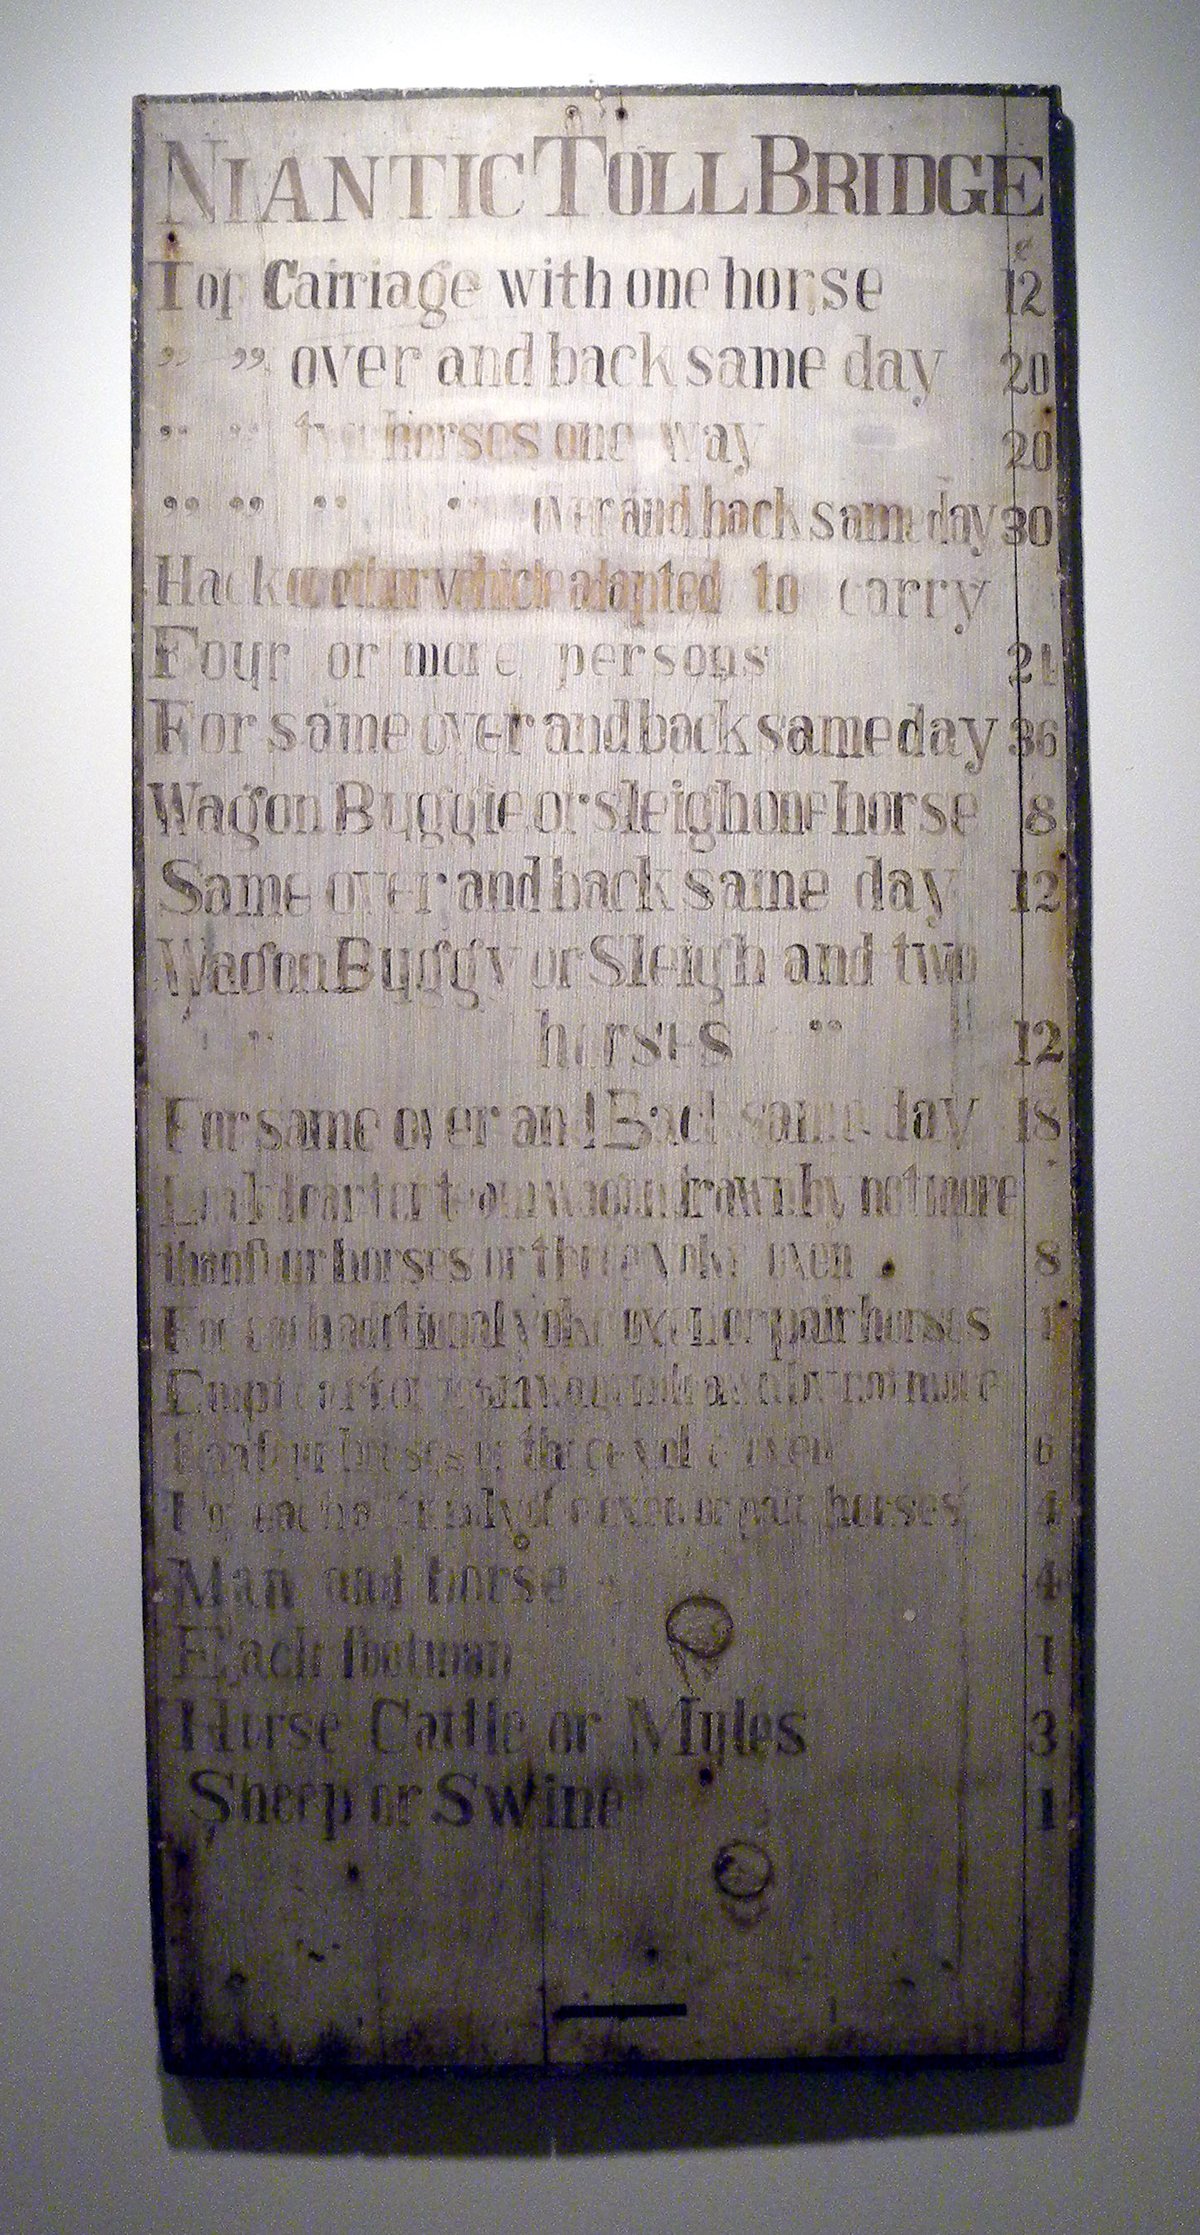 NIANTIC TOLL BRIDGE
¢
Top Carriage with one horse 12
” ” over and back same day 20
” ” two horses one way 20
” ” ” ” over and back same day 30
Hack or other vehicle adapted to carry
Four or more persons 24
For same over and back same day 36
Wagon Buggie or sleigh one horse 8
Same over and back same day 12
Wagon Buggy or Sleigh and two
” horses ” 12
For same over and Back same day 18
cart or team wagon drawn by not more
than four horses or three yoke oxen 8
For each additional yoke oxen or pair horses 1
cart or not more
than four horses or three yoke oxen 6
For each oxen or pair horses 4
Man and horse 4
Each footman 1
Horse Cattle or Mules 3
Sheep or Swine 1